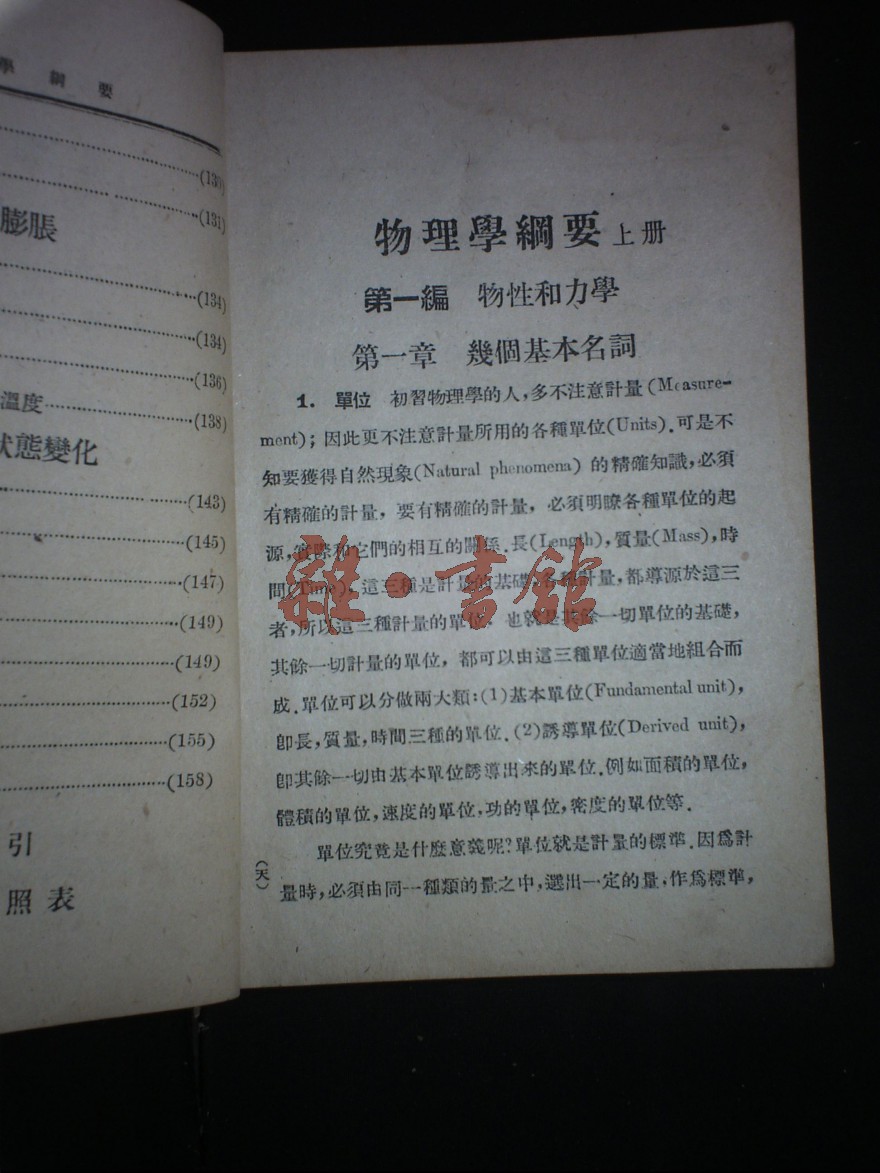 學綱要
(130)
(131)
膨脹
(134)
(134)
(136)
溫度 (138)
狀態變化
(143)
(145)
(147)
(149)
(149)
(152)
(155)
(158)
引
照表
物理學綱要 上册
第一編 物性和力學
第一章 幾個基本名詞
1. 單位 初習物理學的人,多不注意計量(Measure-
ment);因此更不注意計量所用的各種單位(Units).可是不
知要獲得自然現象(Natural phenomena)的精確知識,必須
有精確的計量,要有精確的計量,必須明瞭各種單位的起
源,實際和它們的相互的關係.長(Length),質量(Mass),時
間(Time),這三種是計量的基礎,各種計量,都導源於這三
者,所以這三種計量的單位,也就是其餘一切單位的基礎,
其餘一切計量的單位,都可以由這三種單位適當地組合而
成.單位可以分做兩大類:(1)基本單位(Fundamental unit),
卽長,質量,時間三種的單位.(2)誘導單位(Derived unit),
卽其餘一切由基本單位誘導出來的單位.例如面積的單位,
體積的單位,速度的單位,功的單位,密度的單位等.
單位究竟是什麼意義呢?單位就是計量的標準.因爲計
量時,必須由同一種類的量之中,選出一定的量,作爲標準,
(天)
雜·書館